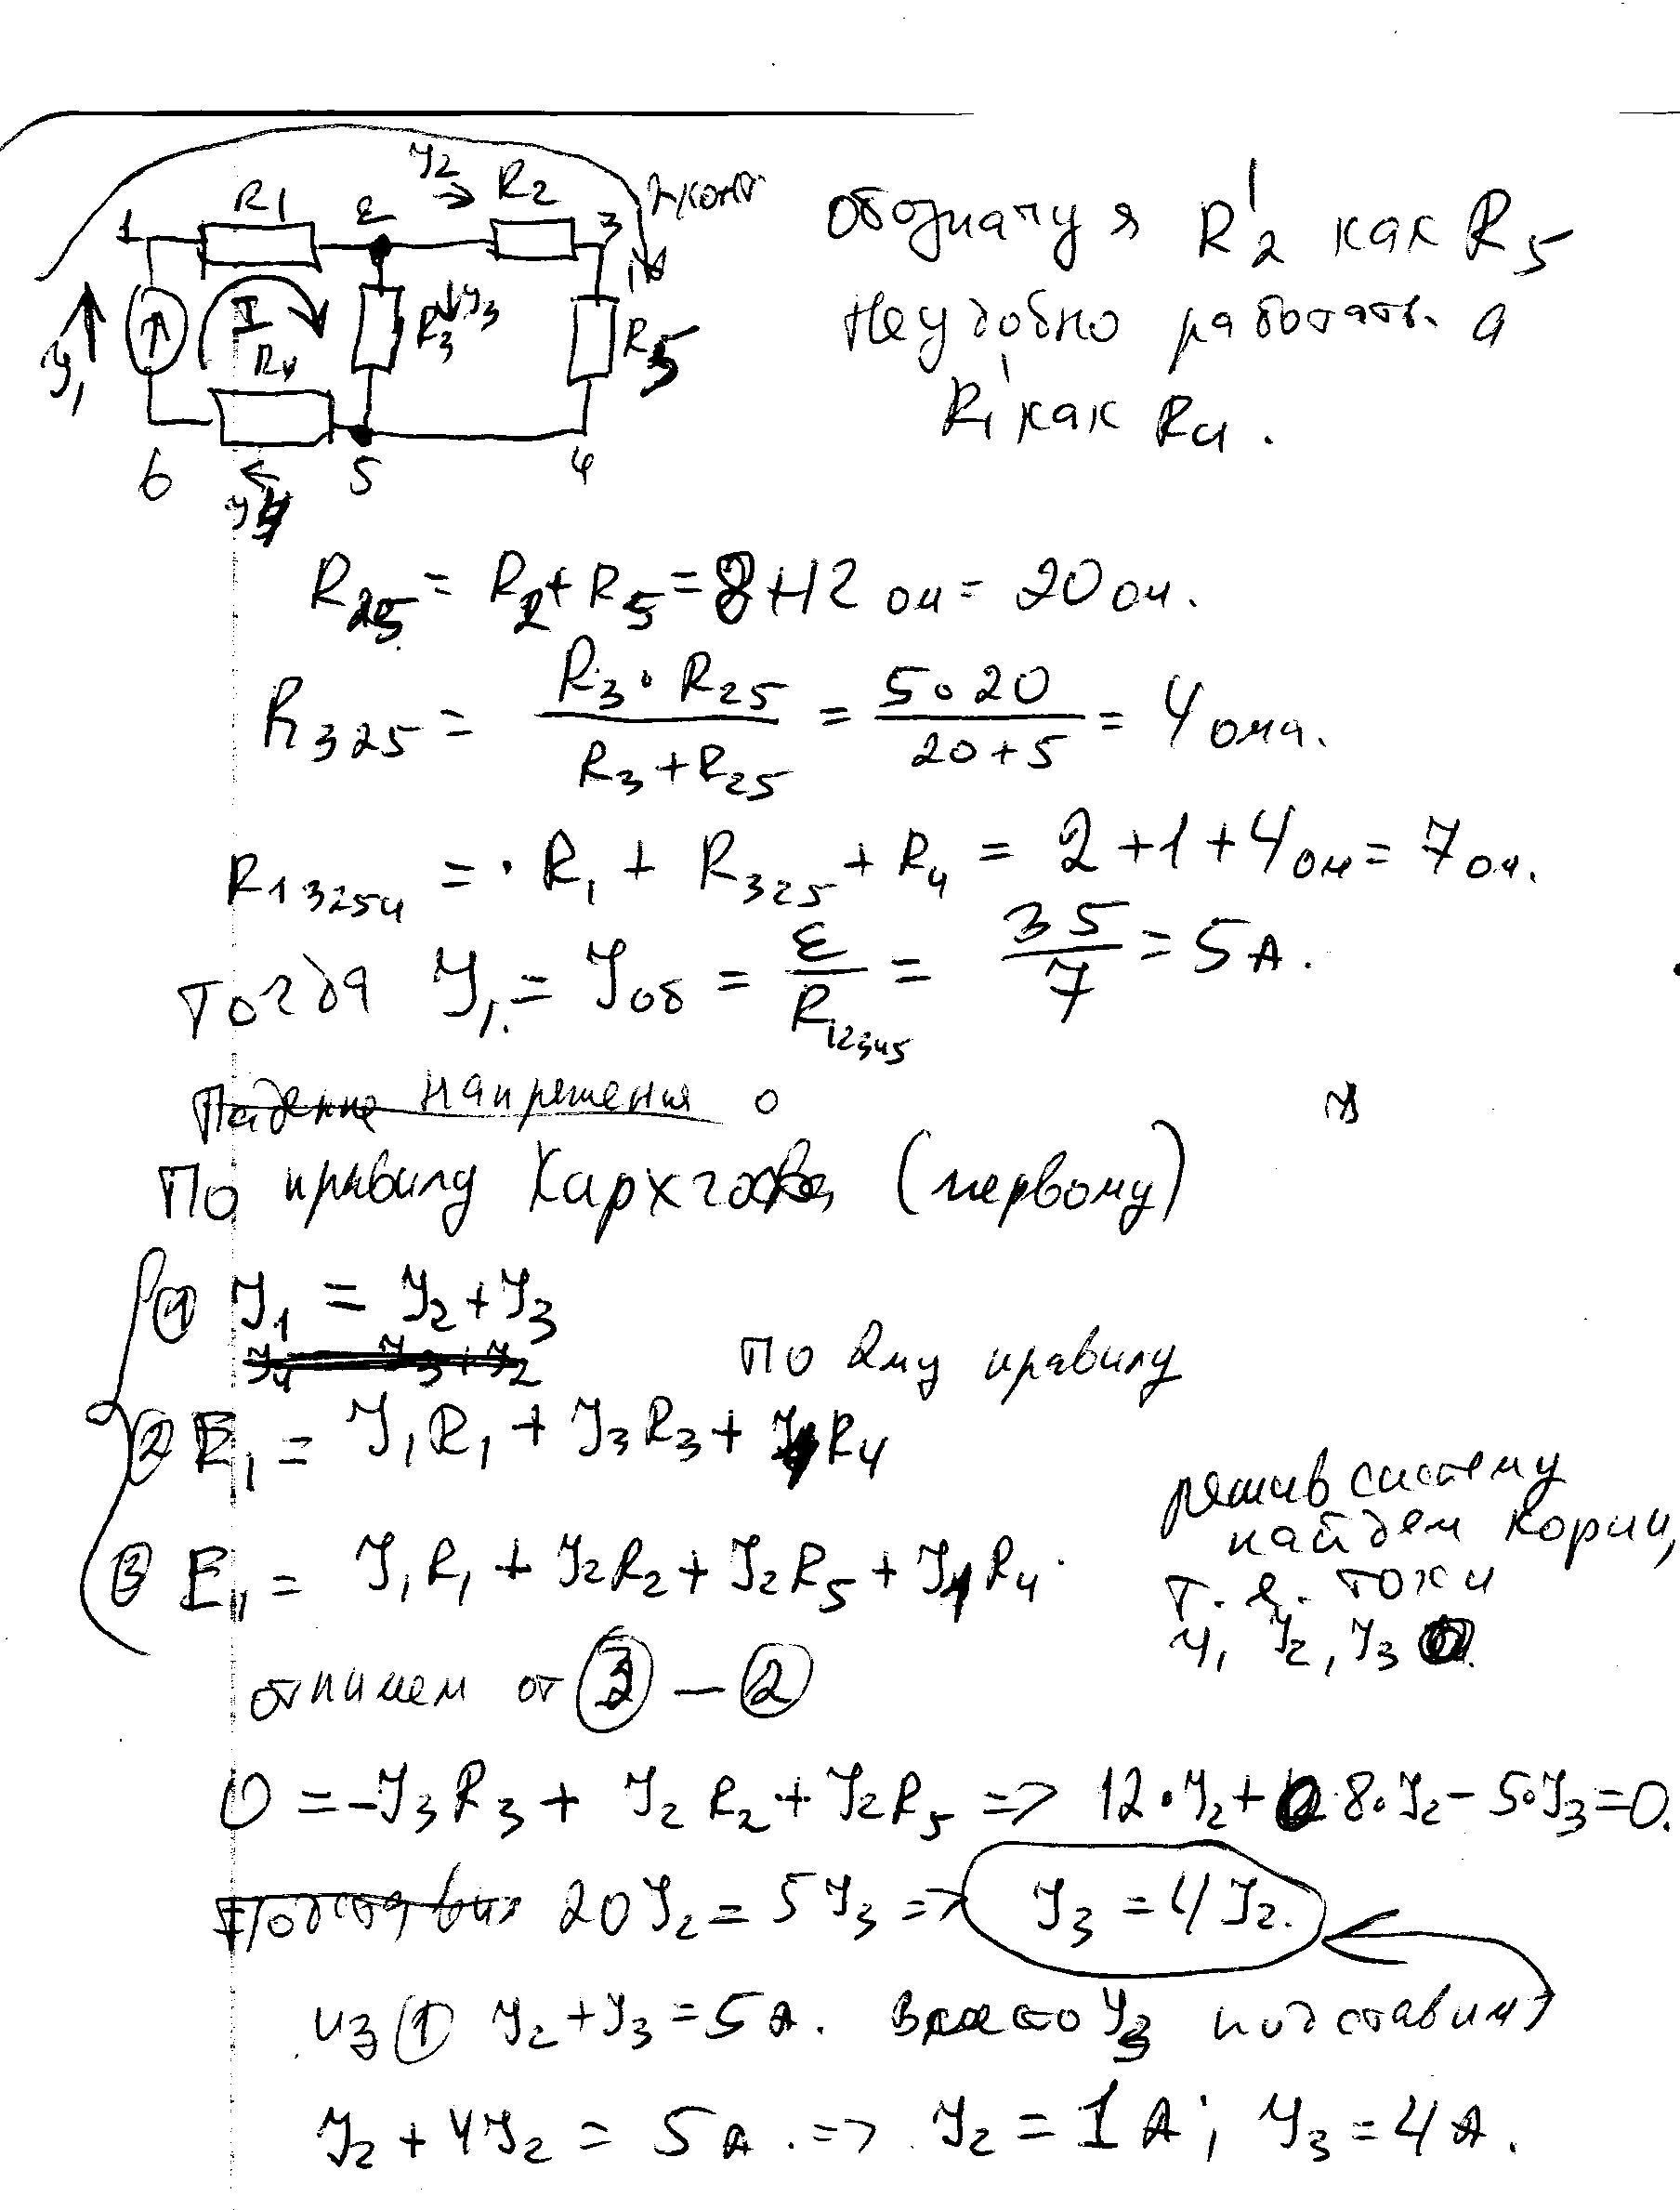 R1 ε J2 → R2 2 конт
1 3
J1 I R3 J3 R5
R4
6 5 4
J4
обозначу я R2' как R5
неудобно работать. а
R1' как R4.
R25 = R2 + R5 = 8+12 ом = 20 ом.
R325 = R3 · R25 / R3 + R25 = 5·20 / 20+5 = 4 ома.
R13254 = · R1 + R325 + R4 = 2+1+4 ом = 7 ом.
тогда J1 = Jоб = ε / R12345 = 35 / 7 = 5 А.
Падение напряжения
По правилу Кирхгофа (первому)
① J1 = J2 + J3
J4 = J3 + J2
По 2му правилу
② E1 = J1R1 + J3R3 + J1R4
③ E1 = J1R1 + J2R2 + J2R5 + J1R4
решив систему
найдем корни,
т.е. токи
J1, J2, J3
отнимем от ③ – ②
0 = -J3R3 + J2R2 + J2R5 => 12·J2 + 8·J2 - 5·J3 = 0.
Подставим 20J2 = 5J3 => J3 = 4J2.
из ① J2 + J3 = 5 А. вместо J3 подставим
J2 + 4J2 = 5 А. => J2 = 1 А; J3 = 4 А.